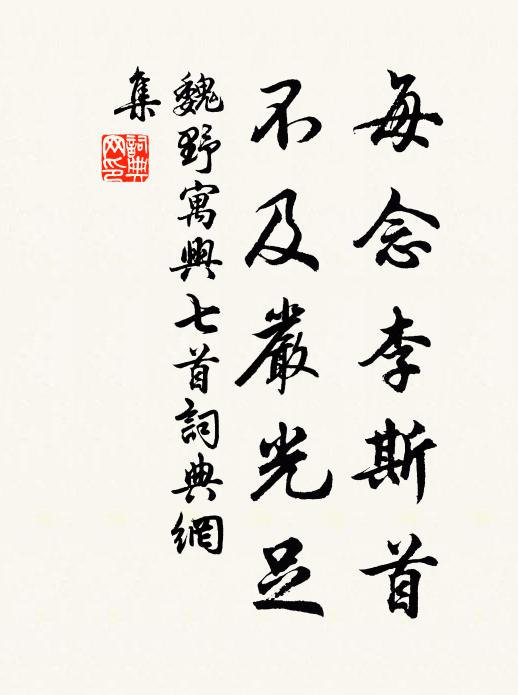 每念李斯首
不及嚴光足
魏野寓興七首詞典網
集
詞典
网印